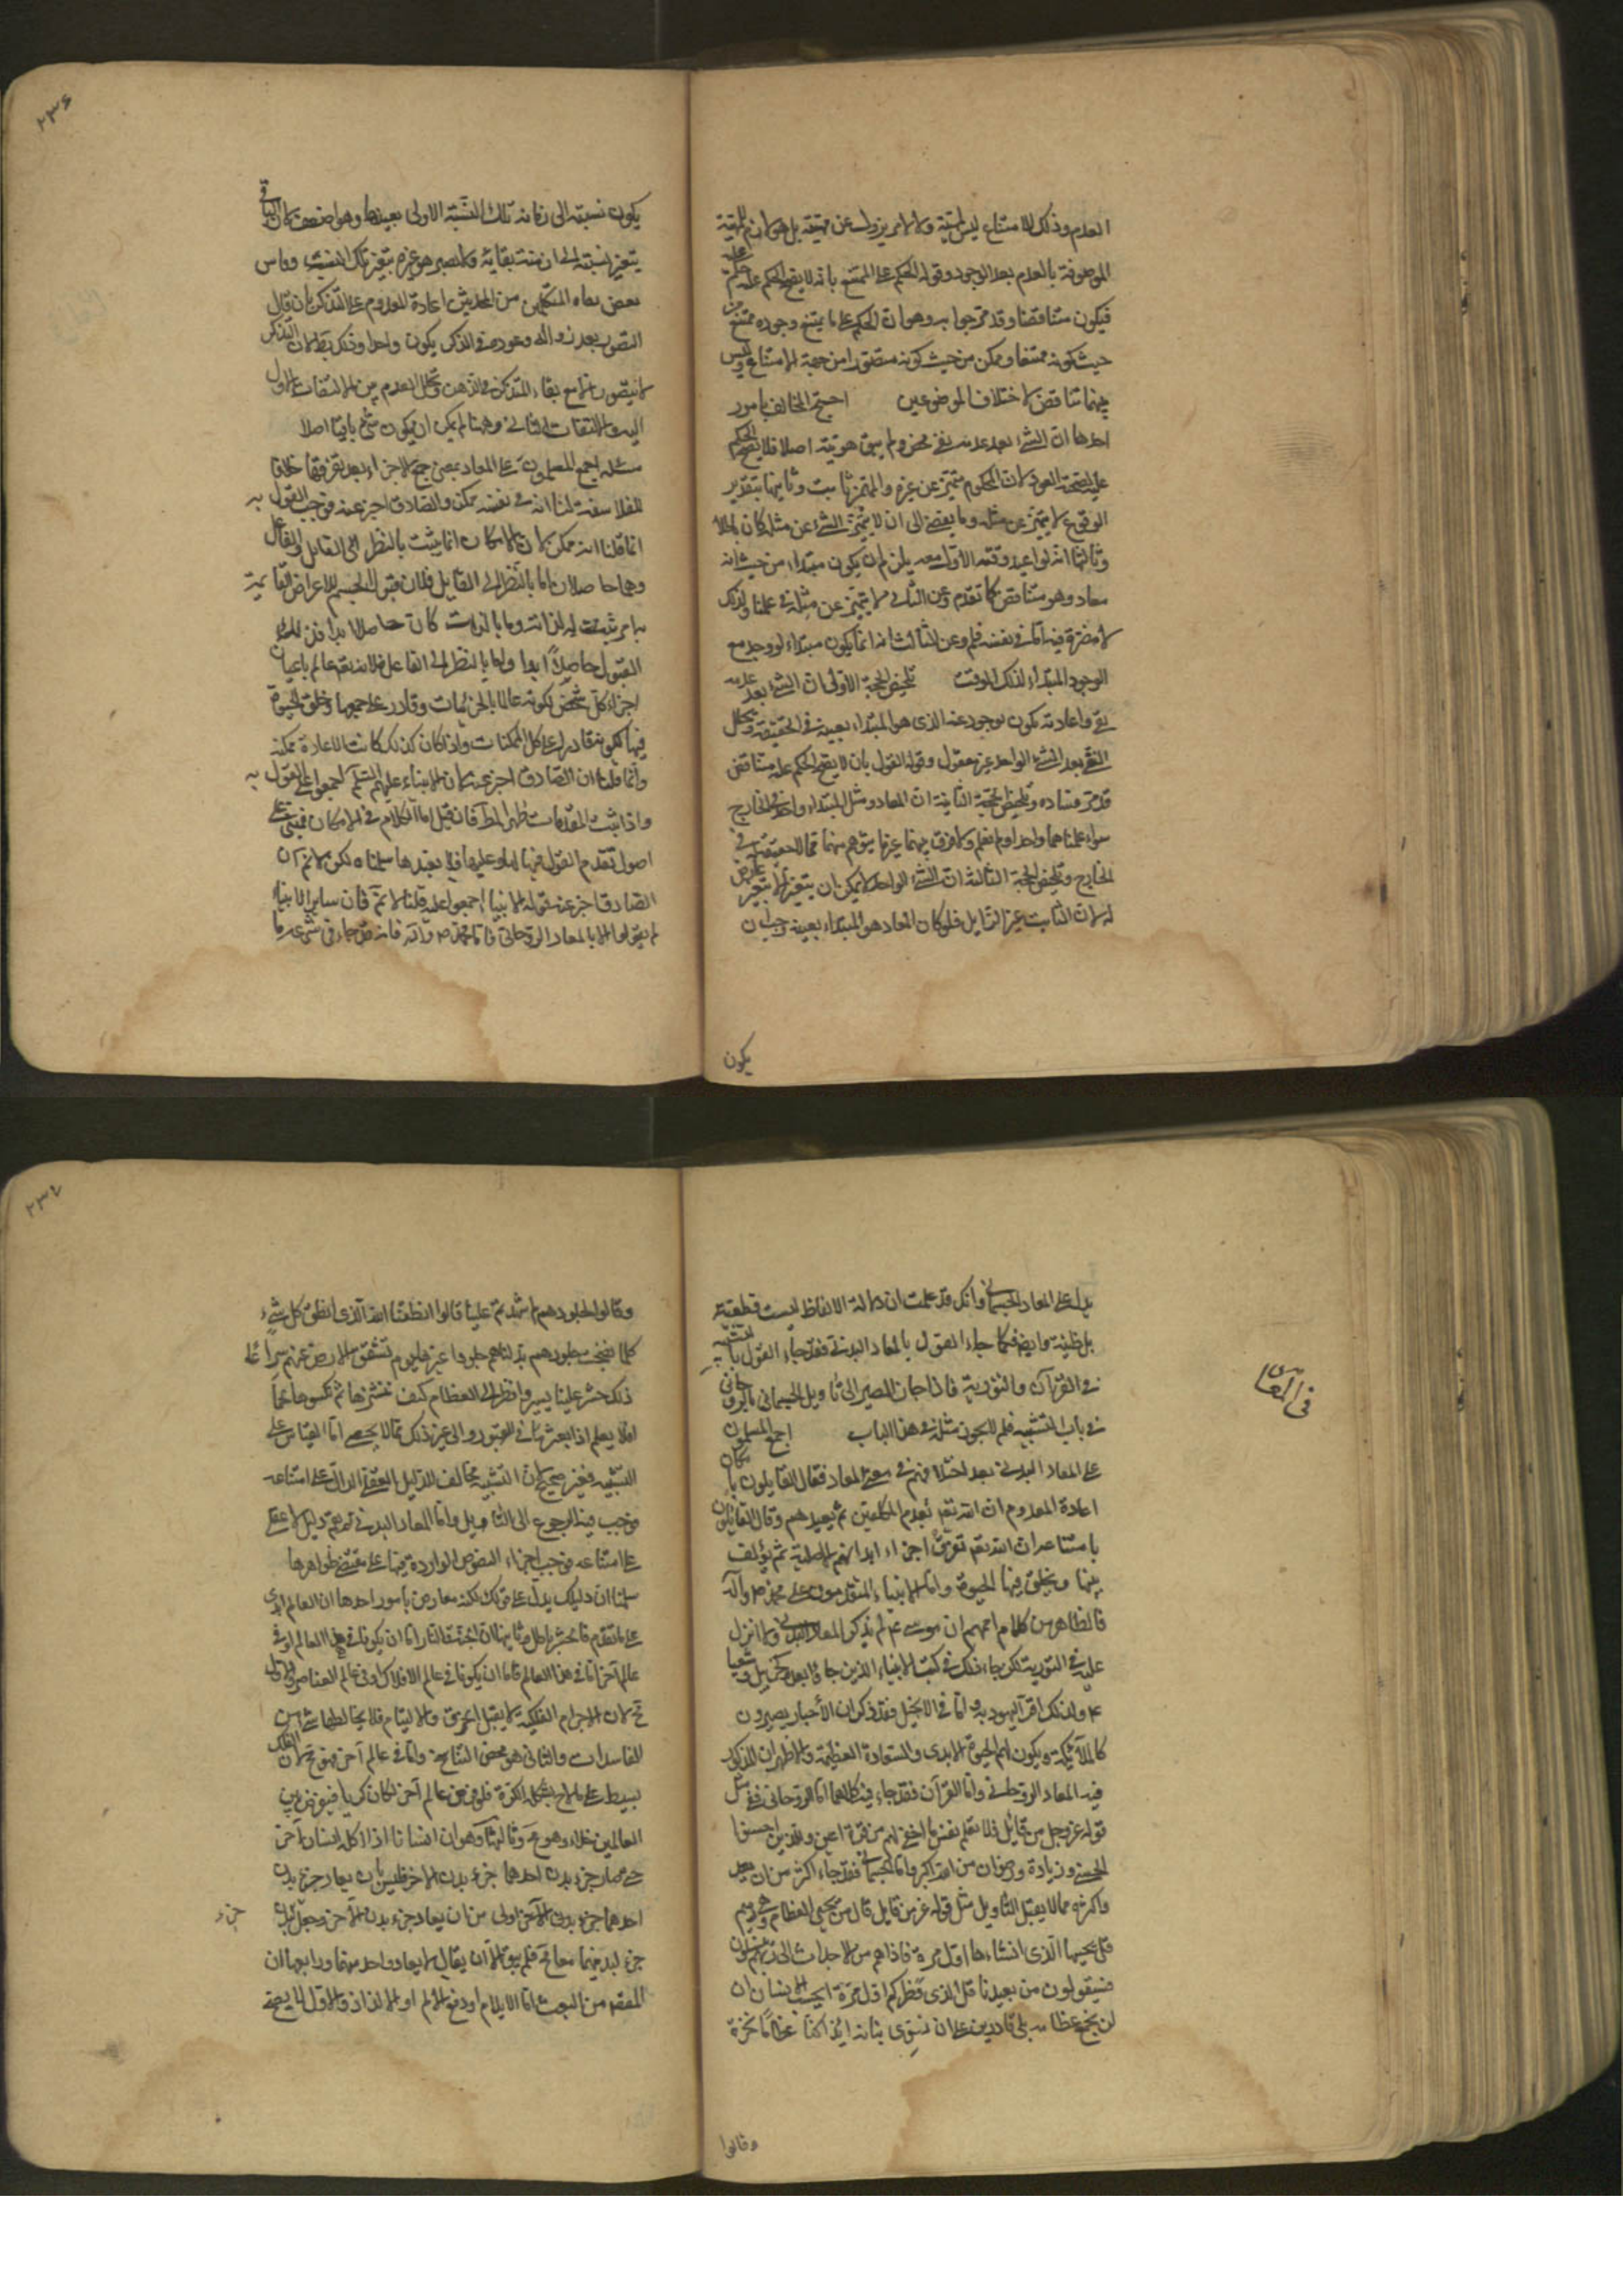 العدم وذلك الامتناع ليس لمهيته ولا لامر يزول عن مهيته بل هو لازم للمهية
الموصوفة بالعدم بعد الوجود وقوله الحكم على الممتنع بانه لا يصح الحكم عليه حكم عليه
فيكون متناقضا وقد مر جوابه وهو ان الحكم على ما يمتنع وجوده ممتنع من
حيث كونه ممتنعا وممكن من حيث كونه متصورا من جهة الامتناع وليس
بينهما تناقض لاختلاف الموضوعين احتج المخالف بامور
احدها ان الشيء بعد عدمه نفي محض ولم يبق هويته اصلا فلا يصح الحكم
عليه بصحة العود لان المحكوم متميز عن غيره والمتميز ثابت وثانيها بتقدير
الوقوع لا يتميز عن مثله وما يفضي الى ان لا يتميز الشيء عن مثله كان باطلا
وثالثها انه لو اعيد وقته الاول معه يلزم ان يكون مبتداء من حيث انه
معاد وهو متناقض كما تقدم وعن الثاني لا يتميز عن مثله في علمنا وذلك
لا مضرة فيه اما في نفسه فلم وعن الثالث انه انما يكون مبتداء لو وجد مع
الوجود المبتداء لذلك الوقت تلخيص الحجة الاولى ان الشيء بعد عدمه
نفي واعادته تكون بوجود عينه الذي هو المبتداء بعينه في الحقيقة وتخلل
النفي بعد الشيء الواحد غير معقول وقوله القول بان لا يصح الحكم عليه متناقض
قد مر فساده وتلخيص الحجة الثانية ان المعاد ومثل المبتداء واحد في الخارج
سواء علمناهما واحدا او لم نعلم ولا فرق بينهما غير ما يتوهم منهما مما لا حقيقة له في
الخارج وتلخيص الحجة الثالثة ان الشيء الواحد لا يمكن ان يتغير الا بتغير عارض
له لان الثابت غير الزايل فلو كان المعاد هو المبتداء بعينه وجب ان
يكون
٢٣٦
يكون نسبته الى زمانه تلك النسبة الاولى بعينها وهو ضعيف لان الباقي
يتغير نسبته الى ازمنة بقائه ولا يصير هو غيره بتغير تلك النسبة وقاس
بعض المتكلمين من المحدثين اعادة المعدوم على التذكر بان قال
التصور بعد زواله وعوده في الذكر يكون واحدا وذلك باطل لان التذكر
لا يتصور الا مع بقاء المتذكر في الذهن وتخلل العدم بين الالتفات الاول
اليه والالتفات الثاني وههنا لم يمكن ان يكون شيء باقيا اصلا
مسئلة اجمع المسلمون على المعاد بمعنى جمع الاجزاء بعد تفرقها خلافا
للفلاسفة لنا انه في نفسه ممكن والصادق اخبر عنه فوجب القول به
انما قلنا انه ممكن لان الامكان انما يثبت بالنظر الى القابل والفاعل
وهما حاصلان اما بالنظر الى القابل فلان قبول الجسم للاعراض القايمة
به امر ثبت له لذاته وما بالذات كان حاصلا ابدا فذلك
القبول حاصلا ابدا واما بالنظر الى الفاعل فلانه تعالى عالم باعيان
اجزاء كل شخص لكونه عالما بالجزئيات وقادر على جمعها وخلق الحيوة
فيها لكونه قادرا على كل الممكنات واذا كان كذلك كانت الاعادة ممكنة
وانما قلنا ان الصادق اخبر عنه لان الانبياء عليهم السلم اجمعوا على القول به
واذا ثبت المقدمات ظهر المط فان قيل اما الكلام في الامكان فمبني على
اصول تقدم القول فيها لها وعليها فلا نعيدها سلمناه لكن لا نم ان
الصادق اخبر عنه قوله الانبياء اجمعوا عليه قلنا لا نم فان ساير الانبياء
لم يقولوا الا بالمعاد الروحاني واما محمد ص وآله فانه قد جاء في شرعه ما
يدل على المعاد الجسماني وانك قد علمت ان دلالة الالفاظ ليست قطعية
بل ظنية وايضا فكما جاء القول بالمعاد البدني فقد جاء القول بالتشبيه
في القرآن والتورية فاذا جاز المصير الى تاويل الجسماني بالروحاني
في باب التشبيه فلم لا يجوز مثله في هذا الباب اجمع المسلمون
على المعاد البدني بعد اختلافهم في معنى المعاد فقال القايلون بامكان
اعادة المعدوم ان الله تعالى يعدم المكلفين ثم يعيدهم وقال القايلون
بامتناعه ان الله تعالى يفرق اجزاء ابدانهم الاصلية ثم يؤلف
بينها ويخلق فيها الحيوة واما الانبياء المتقدمون على محمد ص وآله
فالظاهر من كلام اممهم ان موسى ع لم يذكر المعاد البدني ولا انزل
عليه في التورية لكن جاء ذلك في كتب الانبياء الذين جاؤا بعده كحزقيل وشعيا
ع ولذلك اقر اليهود به واما في الانجيل فقد ذكر ان الأخيار يصيرون
كالملائكة ويكون لهم الحيوة الابدى والسعادة العظيمة والاظهر ان المذكور
فيه المعاد الروحاني واما القرآن فقد جاء فيه كلاهما اما الروحاني ففي مثل
قوله عز وجل من قائل فلا تعلم نفس ما اخفي لهم من قرة اعين وللذين احسنوا
الحسنى وزيادة ورضوان من الله اكبر واما الجسماني فقد جاء اكثر من ان يعد
واكثره مما لا يقبل التاويل مثل قوله عز من قايل قال من يحيي العظام وهي رميم
قل يحييها الذي انشاءها اول مرة فاذا هم من الاجداث الى ربهم ينسلون
فسيقولون من يعيدنا قل الذي فطركم اول مرة ايحسب الانسان ان
لن نجمع عظامه بلى قادرين على ان نسوي بنانه ائذا كنا عظاما نخرة
وقالوا
في المعاد
٢٣٧
وقالوا لجلودهم لم شهدتم علينا قالوا انطقنا الله الذي انطق كل شيء
كلما نضجت جلودهم بدلناهم جلودا غيرها يوم تشقق الارض عنهم سراعا
ذلك حشر علينا يسير وانظر الى العظام كيف ننشزها ثم نكسوها لحما
افلا يعلم اذا بعثر ما في القبور والى غير ذلك مما لا يحصى اما القياس على
التشبيه فغير صحيح لان التشبيه مخالف للدليل العقلي الدال على امتناعه
فوجب فيه الرجوع الى التاويل واما المعاد البدني لم يقم دليل لا عقلي
على امتناعه فوجب اجراء النصوص الواردة فيها على مقتضى ظواهرها
سلمنا ان دليلك يدل على قولك لكنه معارض بأمور احدها ان العالم ابدي
على ما تقدم فالحشر باطل وثانيها ان الجنة والنار اما ان يكونا في هذا العالم او في
عالم آخر اما في هذا العالم فاما ان يكونا في عالم الافلاك او في عالم العناصر والاول
مح لان الاجرام الفلكية لا يقبل الخرق والالتيام فلا يخالطها شيء من
الفاسدات والثاني هو محض التناسخ واما في عالم آخر فهو مح لان الفلك
بسيط على ما مر بشكله الكرة فلو فرض عالم آخر لكان كريا فيفرض بين
العالمين خلاء وهو مح وثالثها هو ان انسانا اذا اكله انسان آخر
حتى صار جزء بدن احدهما جزء بدن الاخر فليس بان يعاد جزء بدن
احدهما جزء بدن الآخر اولى من ان يعاد جزء بدن الآخر وجعله
جزء
جزء لبدنيهما معا مح فلم يبق الا ان يقال لا يعاد واحد منهما ورابعها ان
المقصد من البعث اما الايلام او دفع الالم او الالذاذ والاول لا يصح